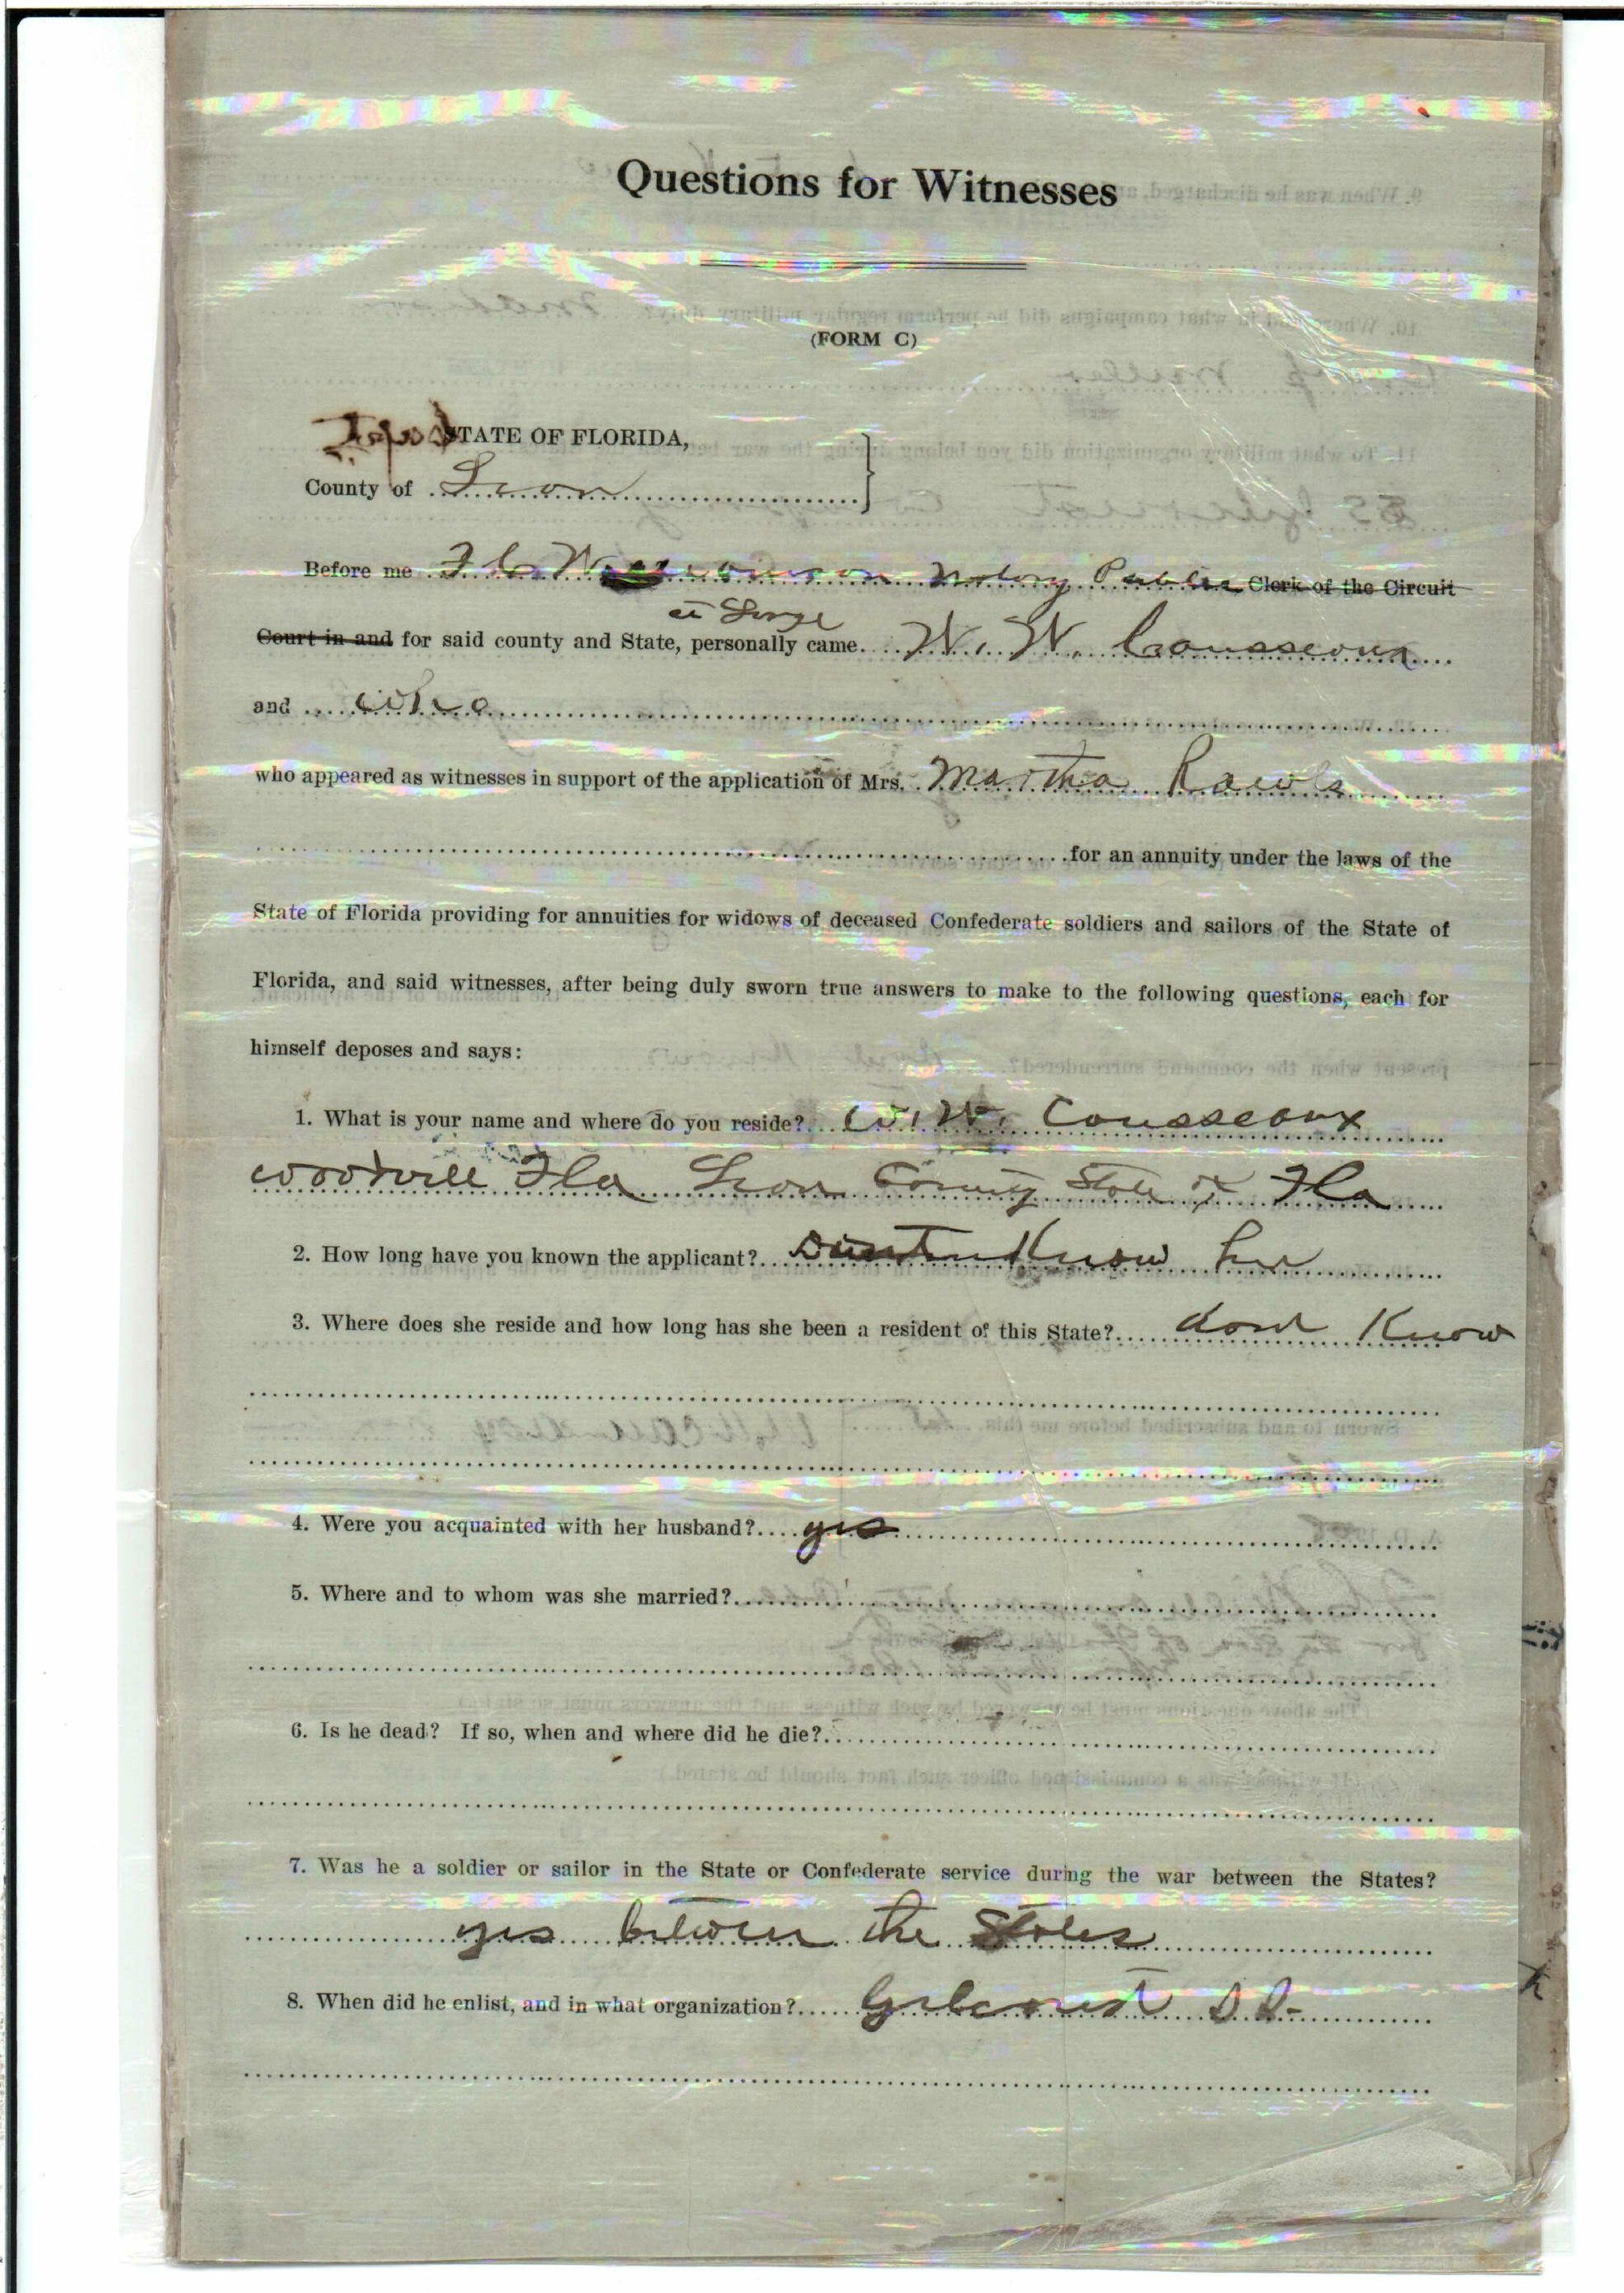 Questions for Witnesses
(FORM C)
STATE OF FLORIDA,
County of Leon
Before me F. C. Notary Public Clerk of the Circuit
at Large
Court in and for said county and State, personally came W. W. Cousseaux
and who
who appeared as witnesses in support of the application of Mrs. Martha Rawls
for an annuity under the laws of the
State of Florida providing for annuities for widows of deceased Confederate soldiers and sailors of the State of
Florida, and said witnesses, after being duly sworn true answers to make to the following questions, each for
himself deposes and says:
1. What is your name and where do you reside? W. W. Cousseaux
Woodvill Fla Leon County State of Fla
2. How long have you known the applicant? Know her
3. Where does she reside and how long has she been a resident of this State? dont Know
4. Were you acquainted with her husband? yes
5. Where and to whom was she married?
6. Is he dead? If so, when and where did he die?
7. Was he a soldier or sailor in the State or Confederate service during the war between the States?
yes between the States
8. When did he enlist, and in what organization?